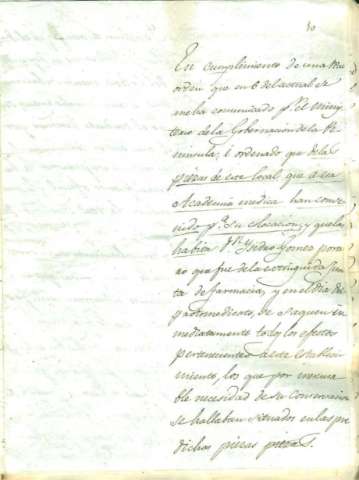 80
En cumplimiento de una Rl
orden que en 6 del actual se
me ha comunicado pr. el minis
terio de la Gobernacion de la Pe
ninsula, é ordenado que de las
piezas de ese local, que á esa
Academia medica han conve
nido pa. su colocacion, y que las
habita Dn. Ysidro Gomez porte
ro que fue de la extinguida Jun
ta de farmacia, y en el dia del
Protomedicato, se saquen in
mediatamente todos los efectos
pertenecientes a este estableci
miento, los que por inescusa
ble necesidad de su conservacion
se hallaban situados en las pre
dichas piezas